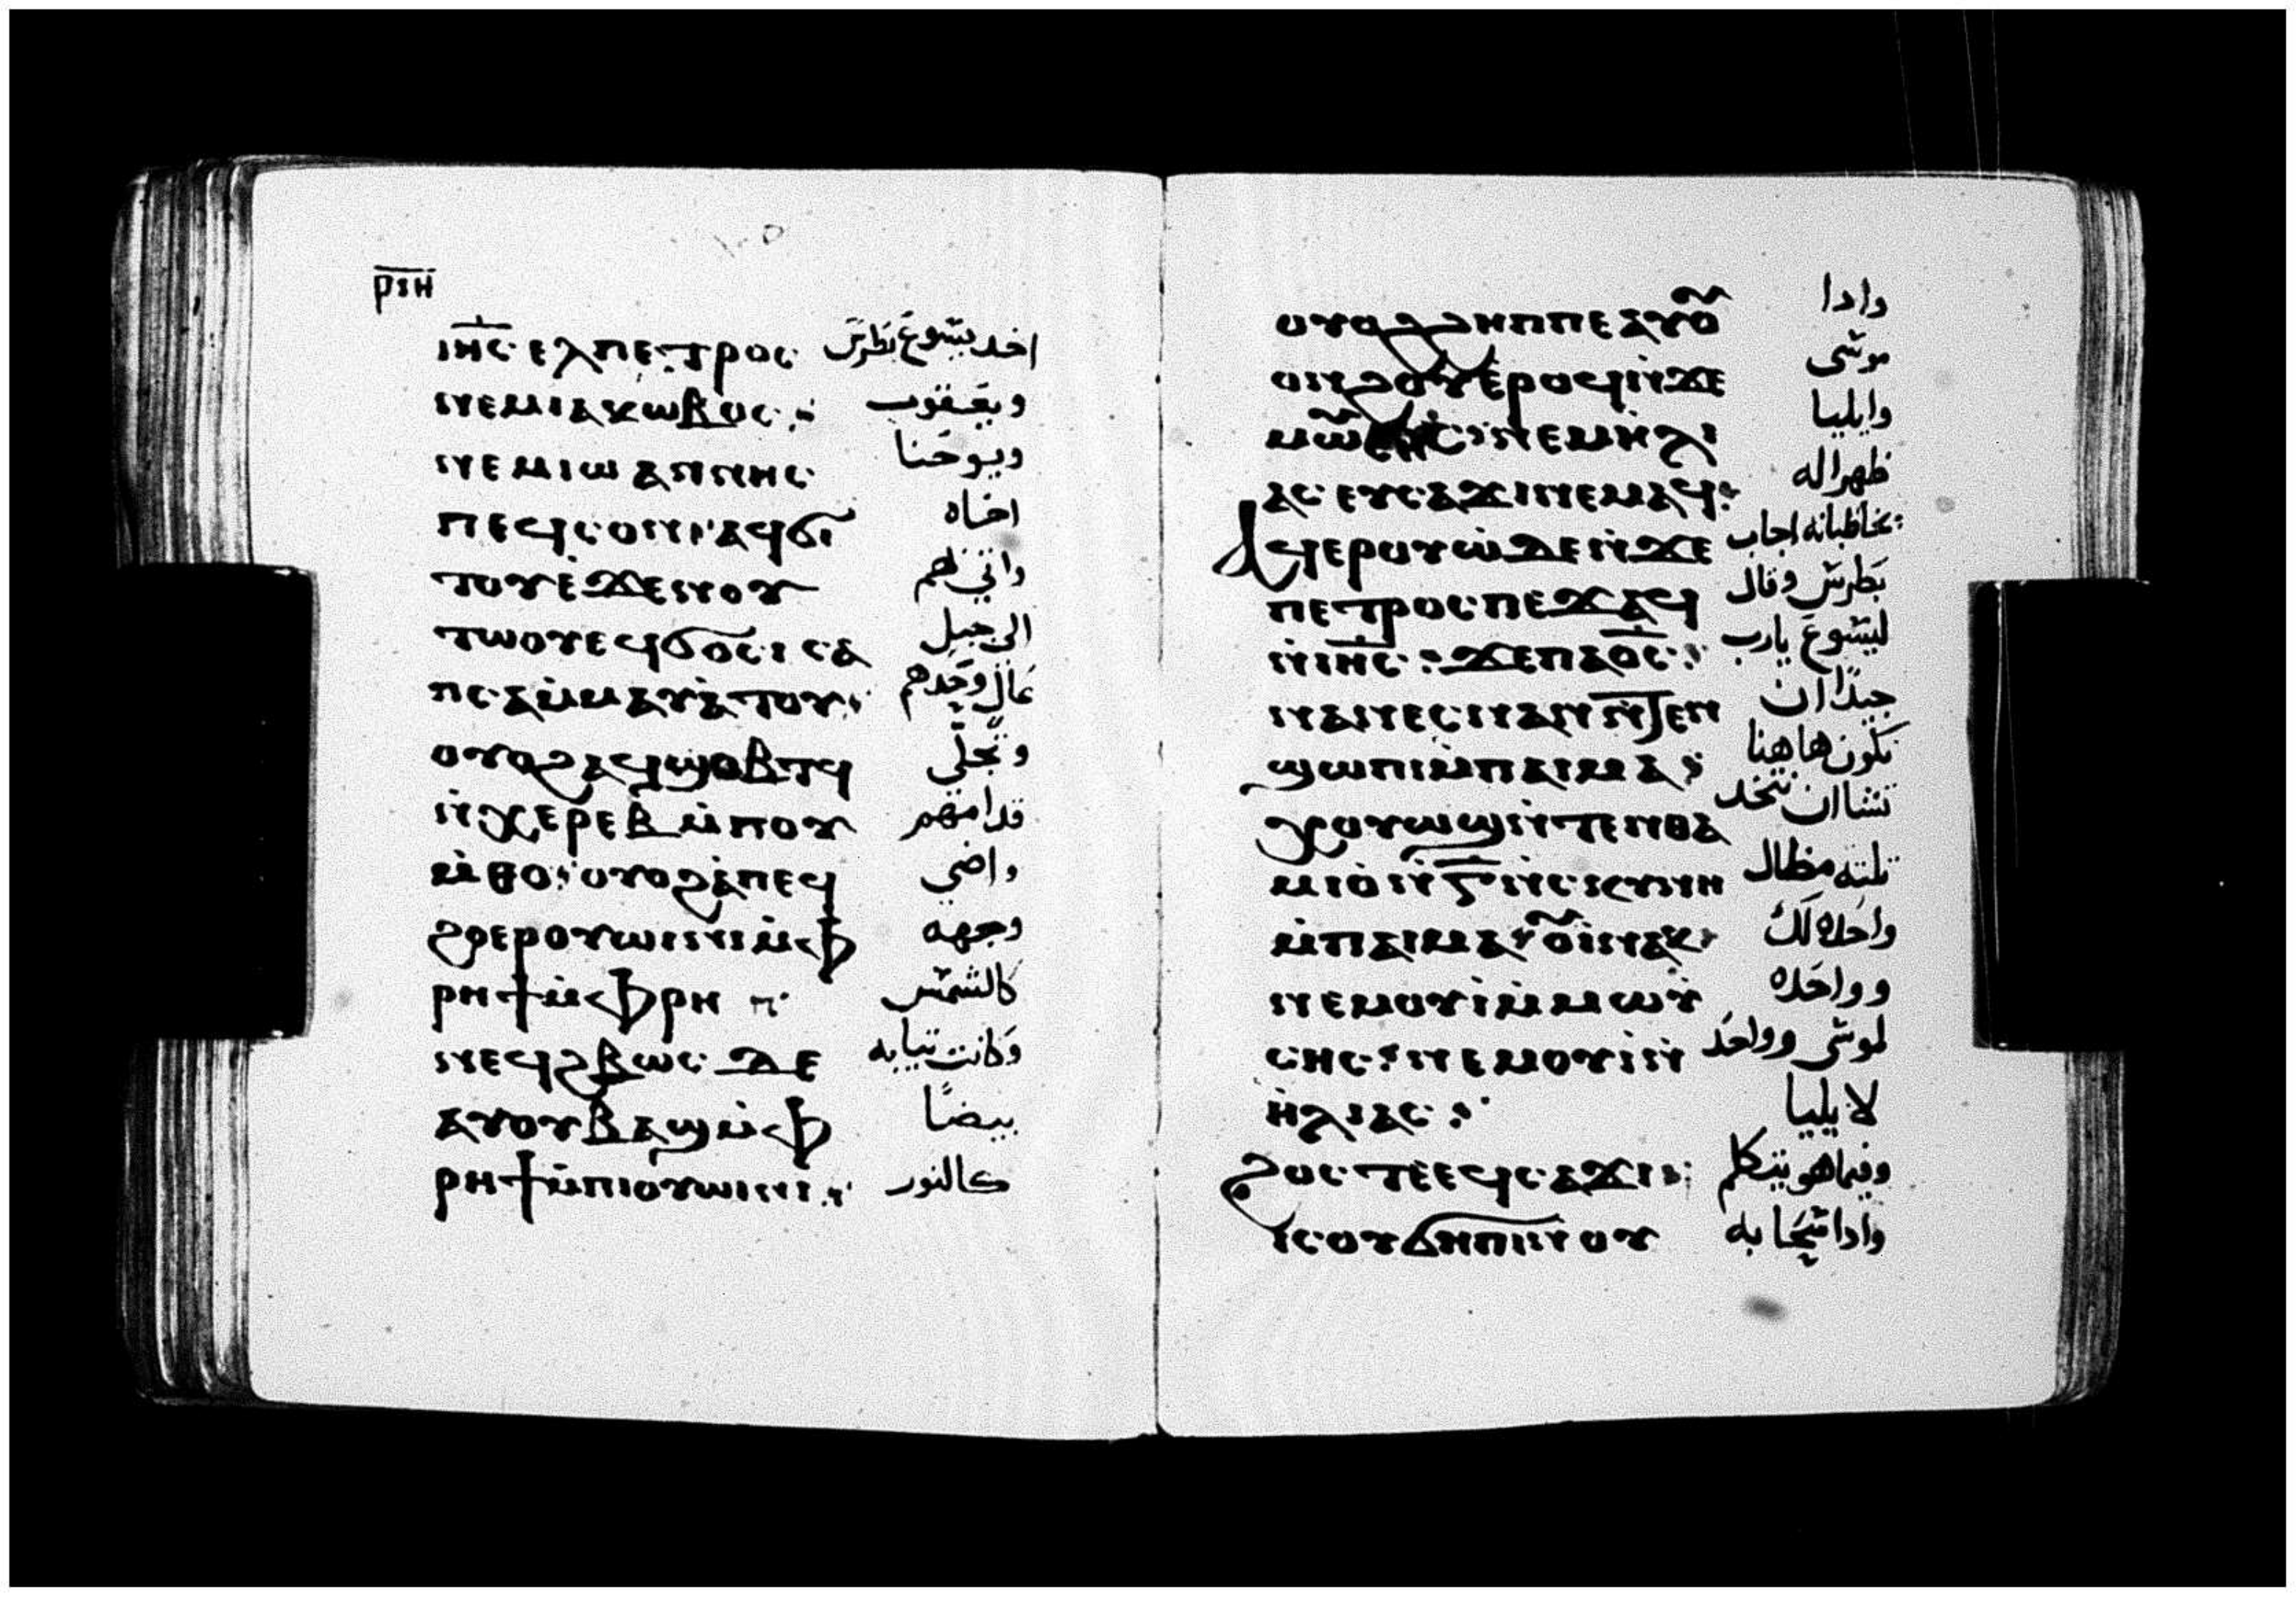 ⲣⲝⲏ
ⲓⲏⲥ ⲉⲗⲡⲉⲧⲣⲟⲥ اخد يسوع بطرس
ⲛⲉⲙⲓⲁⲕⲱⲃⲟⲥ ويعقوب
ⲛⲉⲙⲓⲱⲁⲛⲛⲏⲥ ويوحنا
ⲡⲉϥⲥⲟⲛ ⲁϥϭⲓ اخاه
ⲧⲟⲩⲉ̇ϫⲉⲛⲟⲩ واتى لهم
ⲧⲱⲟⲩⲉϥϭⲟⲥⲓ ⲥⲁ الى جبل
ⲡⲥⲁⲙ̇ⲙⲁⲩⲁ̇ⲧⲟⲩ عال وحدهم
ⲟⲩⲟϩⲁϥϣⲟⲃⲧϥ وتجلى
ⲛ̇ϫⲉⲣⲉⲃ ⲙ̇ⲡⲟⲩ قدامهم
ⲙ̇ⲑⲟ ⲟⲩⲟϩⲁ̇ⲡⲉϥ واضى
ϩⲟⲉⲣⲟⲩⲱⲓⲛⲓⲙ̇ⲫ وجهه
ⲣⲏϯⲙ̇ⲫⲣⲏ كالشمس
ⲛⲉϥϩⲃⲱⲥ ⲇⲉ وكانت تيابه
ⲁⲩⲟⲩⲃⲁϣⲙ̇ⲫ بيضًا
ⲣⲏϯⲙ̇ⲡⲓⲟⲩⲱⲓⲛⲓ كالنور
ⲟⲩⲟϩϩⲏⲡⲡⲉⲁⲩⲟ̄ وادا
ⲟⲛϩⲟⲩⲉ̇ⲣⲟϥⲛ̇ϫⲉ موسى
ⲙⲱ̄ⲥⲏⲥ ⲛⲉⲙⲏⲗⲓ وايليا
ⲁⲥ ⲉⲩⲥⲁϫⲓⲛⲉⲙⲁϥ ظهرا له
ⲁϥⲉⲣⲟⲩⲱ̇ⲇⲉⲛ̇ϫⲉ يخاطبانه اجاب
ⲡⲉⲧⲣⲟⲥ ⲡⲉϫⲁϥ بطرس وقال
ⲛ̇ⲓⲏⲥ ϫⲉⲡⲁⲟ̅ⲥ ليسوع يارب
ⲛⲁⲛⲉⲥⲛⲁⲛ ⲛ̇ⲧⲉⲛ جيدًا ان
ϣⲱⲡⲓⲙ̇ⲡⲁⲓⲙⲁ نكون هاهنا
ⲭⲟⲩⲱϣⲛ̇ⲧⲉⲛⲑⲁ تشا ان نتخد
ⲙⲓⲟ̇ ⲛ̅ⲅ̅ ⲛ̇ⲥⲕⲩⲛⲏ تلته مظال
ⲙ̇ⲡⲁⲓⲙⲁ ⲟⲩⲓ̇ⲛⲁⲕ واحده لك
ⲛⲉⲙⲟⲩⲓ̇ⲙ̇ⲙⲱⲩ̇ وواحده
ⲥⲏⲥ ⲛⲉⲙⲟⲩⲓ̇ⲛ̇ لموسى وواحد
ⲏ̇ⲗⲓⲁⲥ لايليا
ϩⲟⲥⲧⲉⲉϥⲥⲁϫⲓ وفيما هو يتكلم
ⲓⲥⲟⲩϭⲏⲡⲓⲛⲟⲩ وادا سحابه